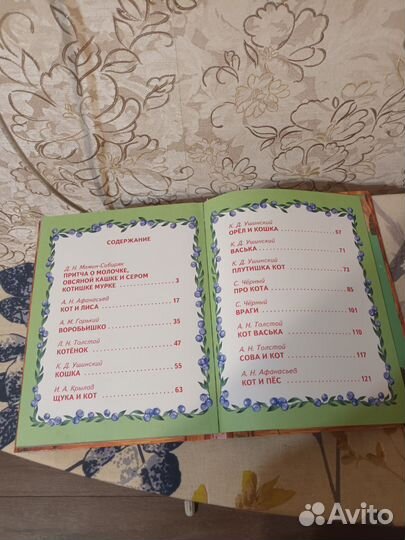 СОДЕРЖАНИЕ
Д. Н. Мамин-Сибиряк
ПРИТЧА О МОЛОЧКЕ,
ОВСЯНОЙ КАШКЕ И СЕРОМ
КОТИШКЕ МУРКЕ 3
А. Н. Афанасьев
КОТ И ЛИСА 17
А. М. Горький
ВОРОБЬИШКО 35
Л. Н. Толстой
КОТЁНОК 47
К. Д. Ушинский
КОШКА 55
И. А. Крылов
ЩУКА И КОТ 63
К. Д. Ушинский
ОРЁЛ И КОШКА 67
К. Д. Ушинский
ВАСЬКА 71
К. Д. Ушинский
ПЛУТИШКА КОТ 73
С. Чёрный
ПРО КОТА 85
С. Чёрный
ВРАГИ 101
А. Н. Толстой
КОТ ВАСЬКА 110
А. Н. Толстой
СОВА И КОТ 117
А. Н. Афанасьев
КОТ И ПЁС 121
Avito